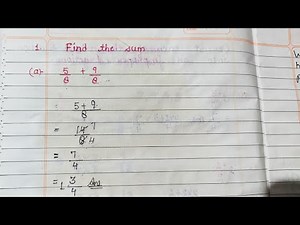 1. Find the sum
(a) 5/8 + 9/8
5+9/8
= 14 7/8 4
= 7/4
= 1 3/4 Ans